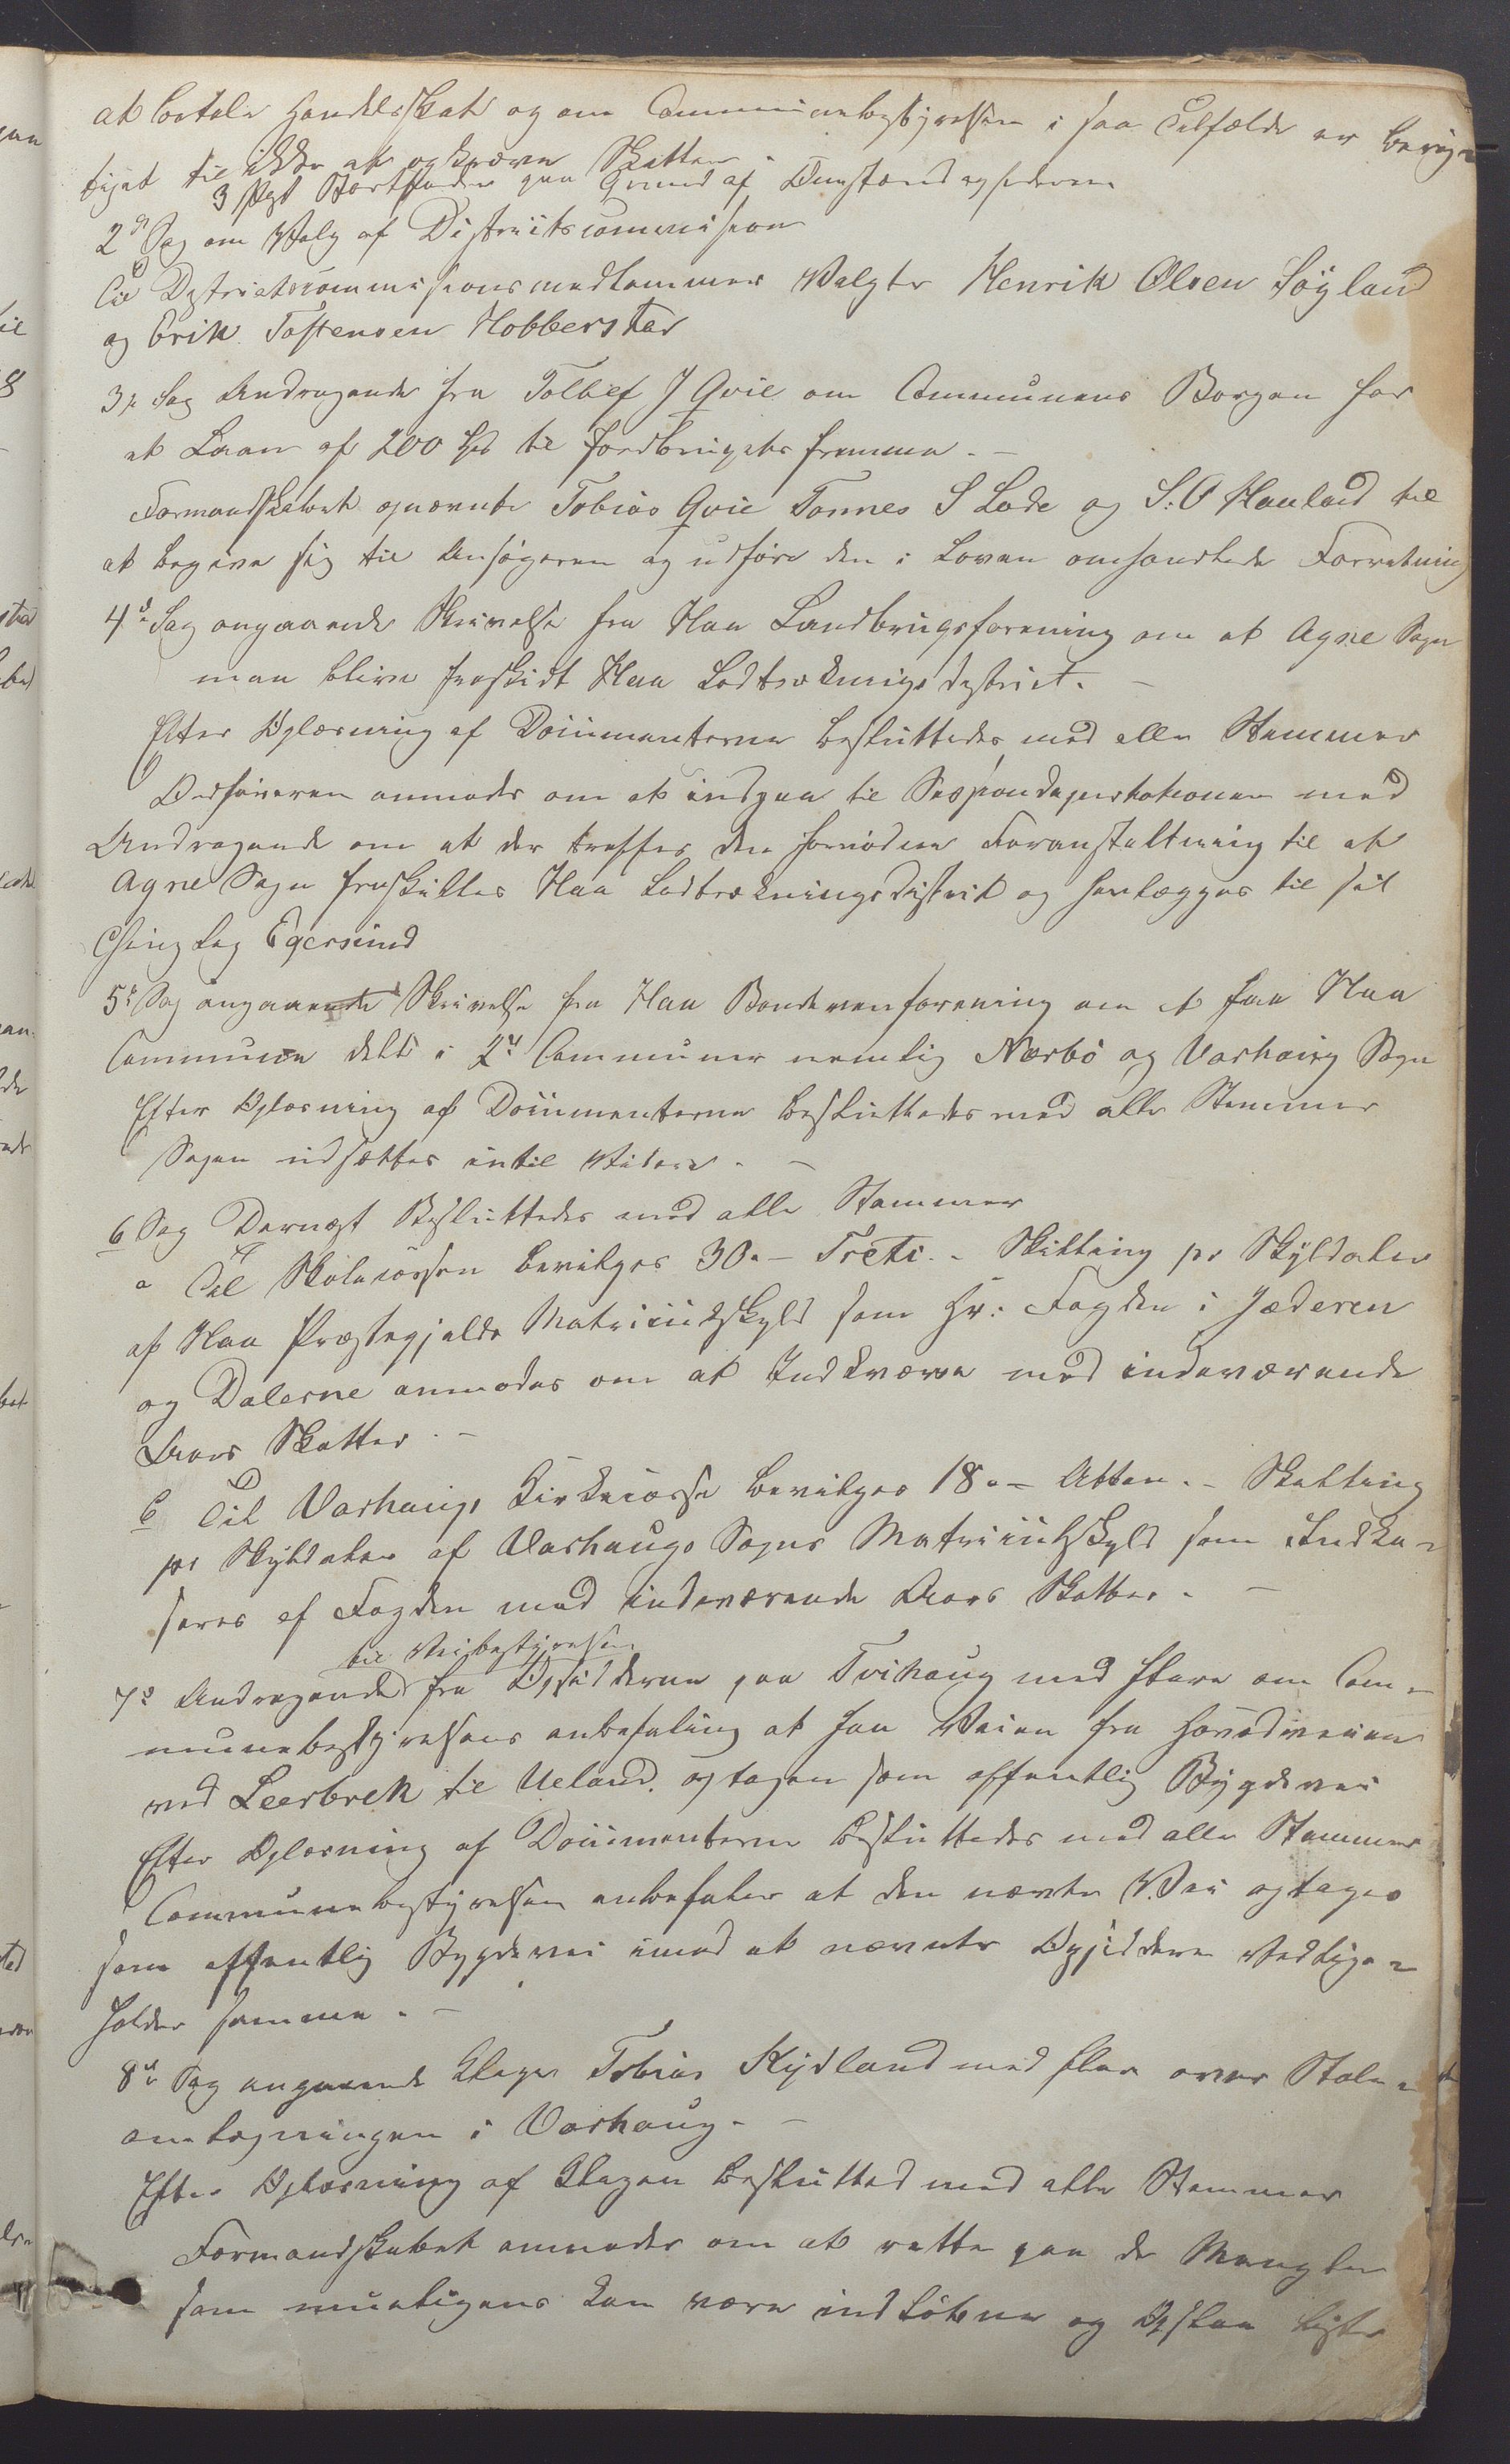 at betale Handelsskat og om Communebestyrelsen i saa Tilfælde er berig-
tiget til ikke at opkræve Skatten.
3 Spd paa Grund af
2den Sag om Valg af Districtscommision
Til Dstrictscommisionsmedlemmer Valgte Henrik Olsen Söyland
og Erik Tostensen Hobberstad
3die Sag Andragende fra Tollef J Qvie om Communens Borgen for
et Laan af 200 Spd til Jordbrugets fremme. —
Formandskabet opnævnte Tobias Qvie Tonnes S Lode og S: O Hauland til
at begive sig til Ansøgeren og udføre den i Loven omhandlede Forretning
4de Sag angaaende Skrivelse fra Haa Landbrugsforening om at Agne Sogn
maa blive fraskidt Haa Lodtrækningsdistrict. —
Efter Oplæsning af Documenterne besluttedes med alle Stemmer
Ordføreren anmodes om at indgaa til Sessionsdeputationen med
Andragende om at der træffes den fornødne Foranstaltning til at
Agne Sogn fraskilles Haa Lodtrækningsdistrik og henlægges til sit
Thinglag Egersund
5te Sag angaaende Skrivelse fra Haa Bondevenforening om at faa Haa
Commune delt i 2de Communer nemlig Nærbö og Varhaug Sogn
Efter Oplæsning af Documenterne besluttedes med alle Stemmer
Sagen udsættes intil Videre. —
6 Sag Dernæst Besluttedes med alle Stemmer
a Til Skolecassen bevilges 30. — Treti. — Skilling pr Skylddaler
af Haa Præstegjelds Matriculskyld som Hr: Fogden i Jæderen
og Dalerne anmodes om at Indkræve med indeværende
Aars Skatter. —
b Til Varhaugs Kirkecasse bevilges 18. — Atten. — Skilling
pr Skylddaler af Varhaugs Sogns Matriculskyld som Indka-
seres af Fogden med indeværende Aars Skatter. —
til Veibestyrelsen
7de Andragende fra Opsidderne paa Tvihaug med flere om Com-
munebestyrelsens anbefaling at faa Veien fra Hovedveien
ved Leerbrek til Ueland optagen som offentlig Bygdevei
Efter Oplæsning af Documenterne besluttedes med alle Stemmer
Communebestyrelsen anbefaler at den nævnte Vei optages
som offentlig Bygdevei imod at nævnte Opsiddere Vedlige-
holder samme. —
8de Sag angaaende Klage Tobias Kydland med flere over Skole-
omlægningen i Varhaug. —
Efter Oplæsning af Klagen beslutted med alle Stemmer
Formandskabet anmodes om at rette paa de Mangler
som mueligens kan være indløbne og